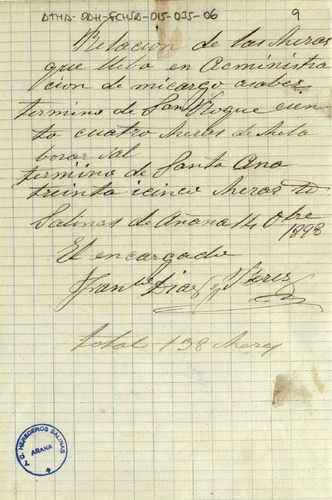 ATHA-DAH-FCHSA-015-035-06
9
Relacion de las Heras
que llebo en Acministra
cion de mi cargo asaber
termino de San Roque cien
to cuatro Heras de
termino de Santa Ana
treinta icinco Heras
Salinas de Añana 14 Obre
1898
El encargado
Franco Diaz y Perez
total 138 Heras
A.G. HEREDEROS SALINAS
AÑANA